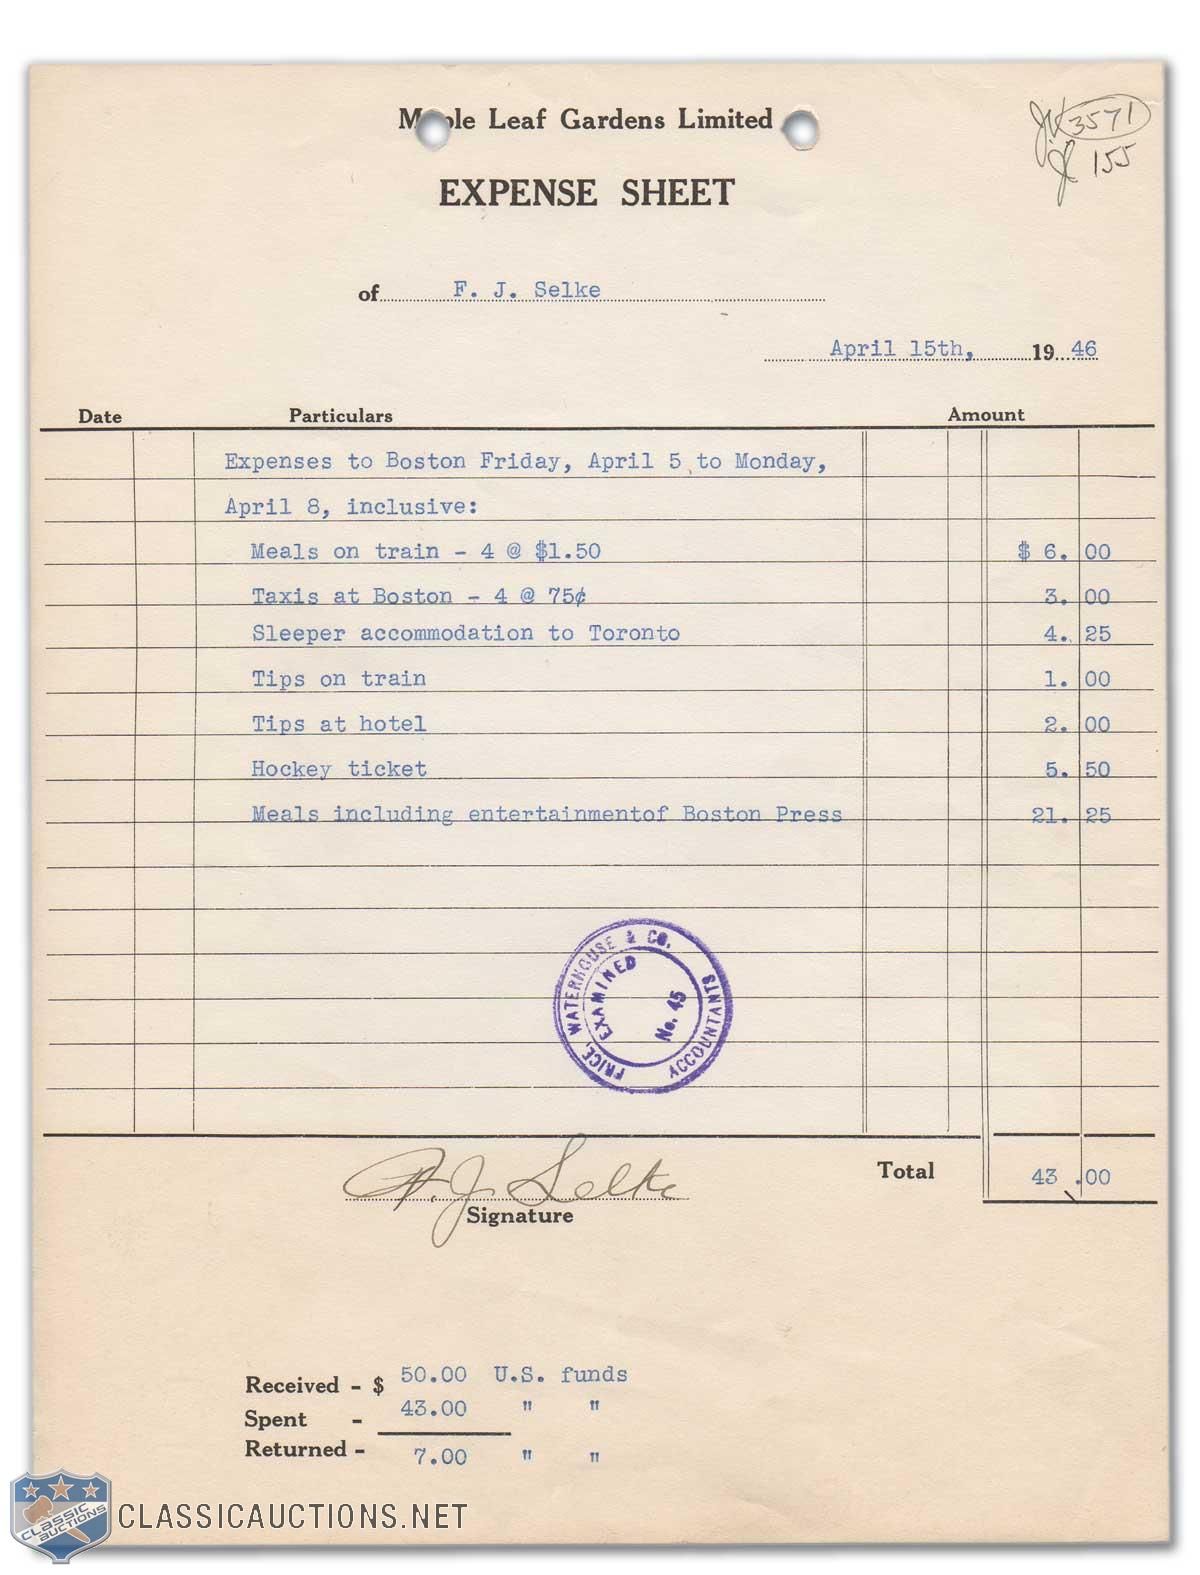 Maple Leaf Gardens Limited
JV 3571
155
EXPENSE SHEET
of F. J. Selke
April 15th, 19 46
Date Particulars Amount
Expenses to Boston Friday, April 5 to Monday,
April 8, inclusive:
Meals on train - 4 @ $1.50 $ 6. 00
Taxis at Boston - 4 @ 75¢ 3. 00
Sleeper accommodation to Toronto 4. 25
Tips on train 1. 00
Tips at hotel 2. 00
Hockey ticket 5. 50
Meals including entertainmentof Boston Press 21. 25
PRICE, WATERHOUSE & CO.
ACCOUNTANTS
EXAMINED
No. 45
F.J. Selke
Signature
Total 43 .00
Received - $ 50.00 U.S. funds
Spent - 43.00 " "
Returned - 7.00 " "
CLASSIC
AUCTIONS
CLASSICAUCTIONS.NET